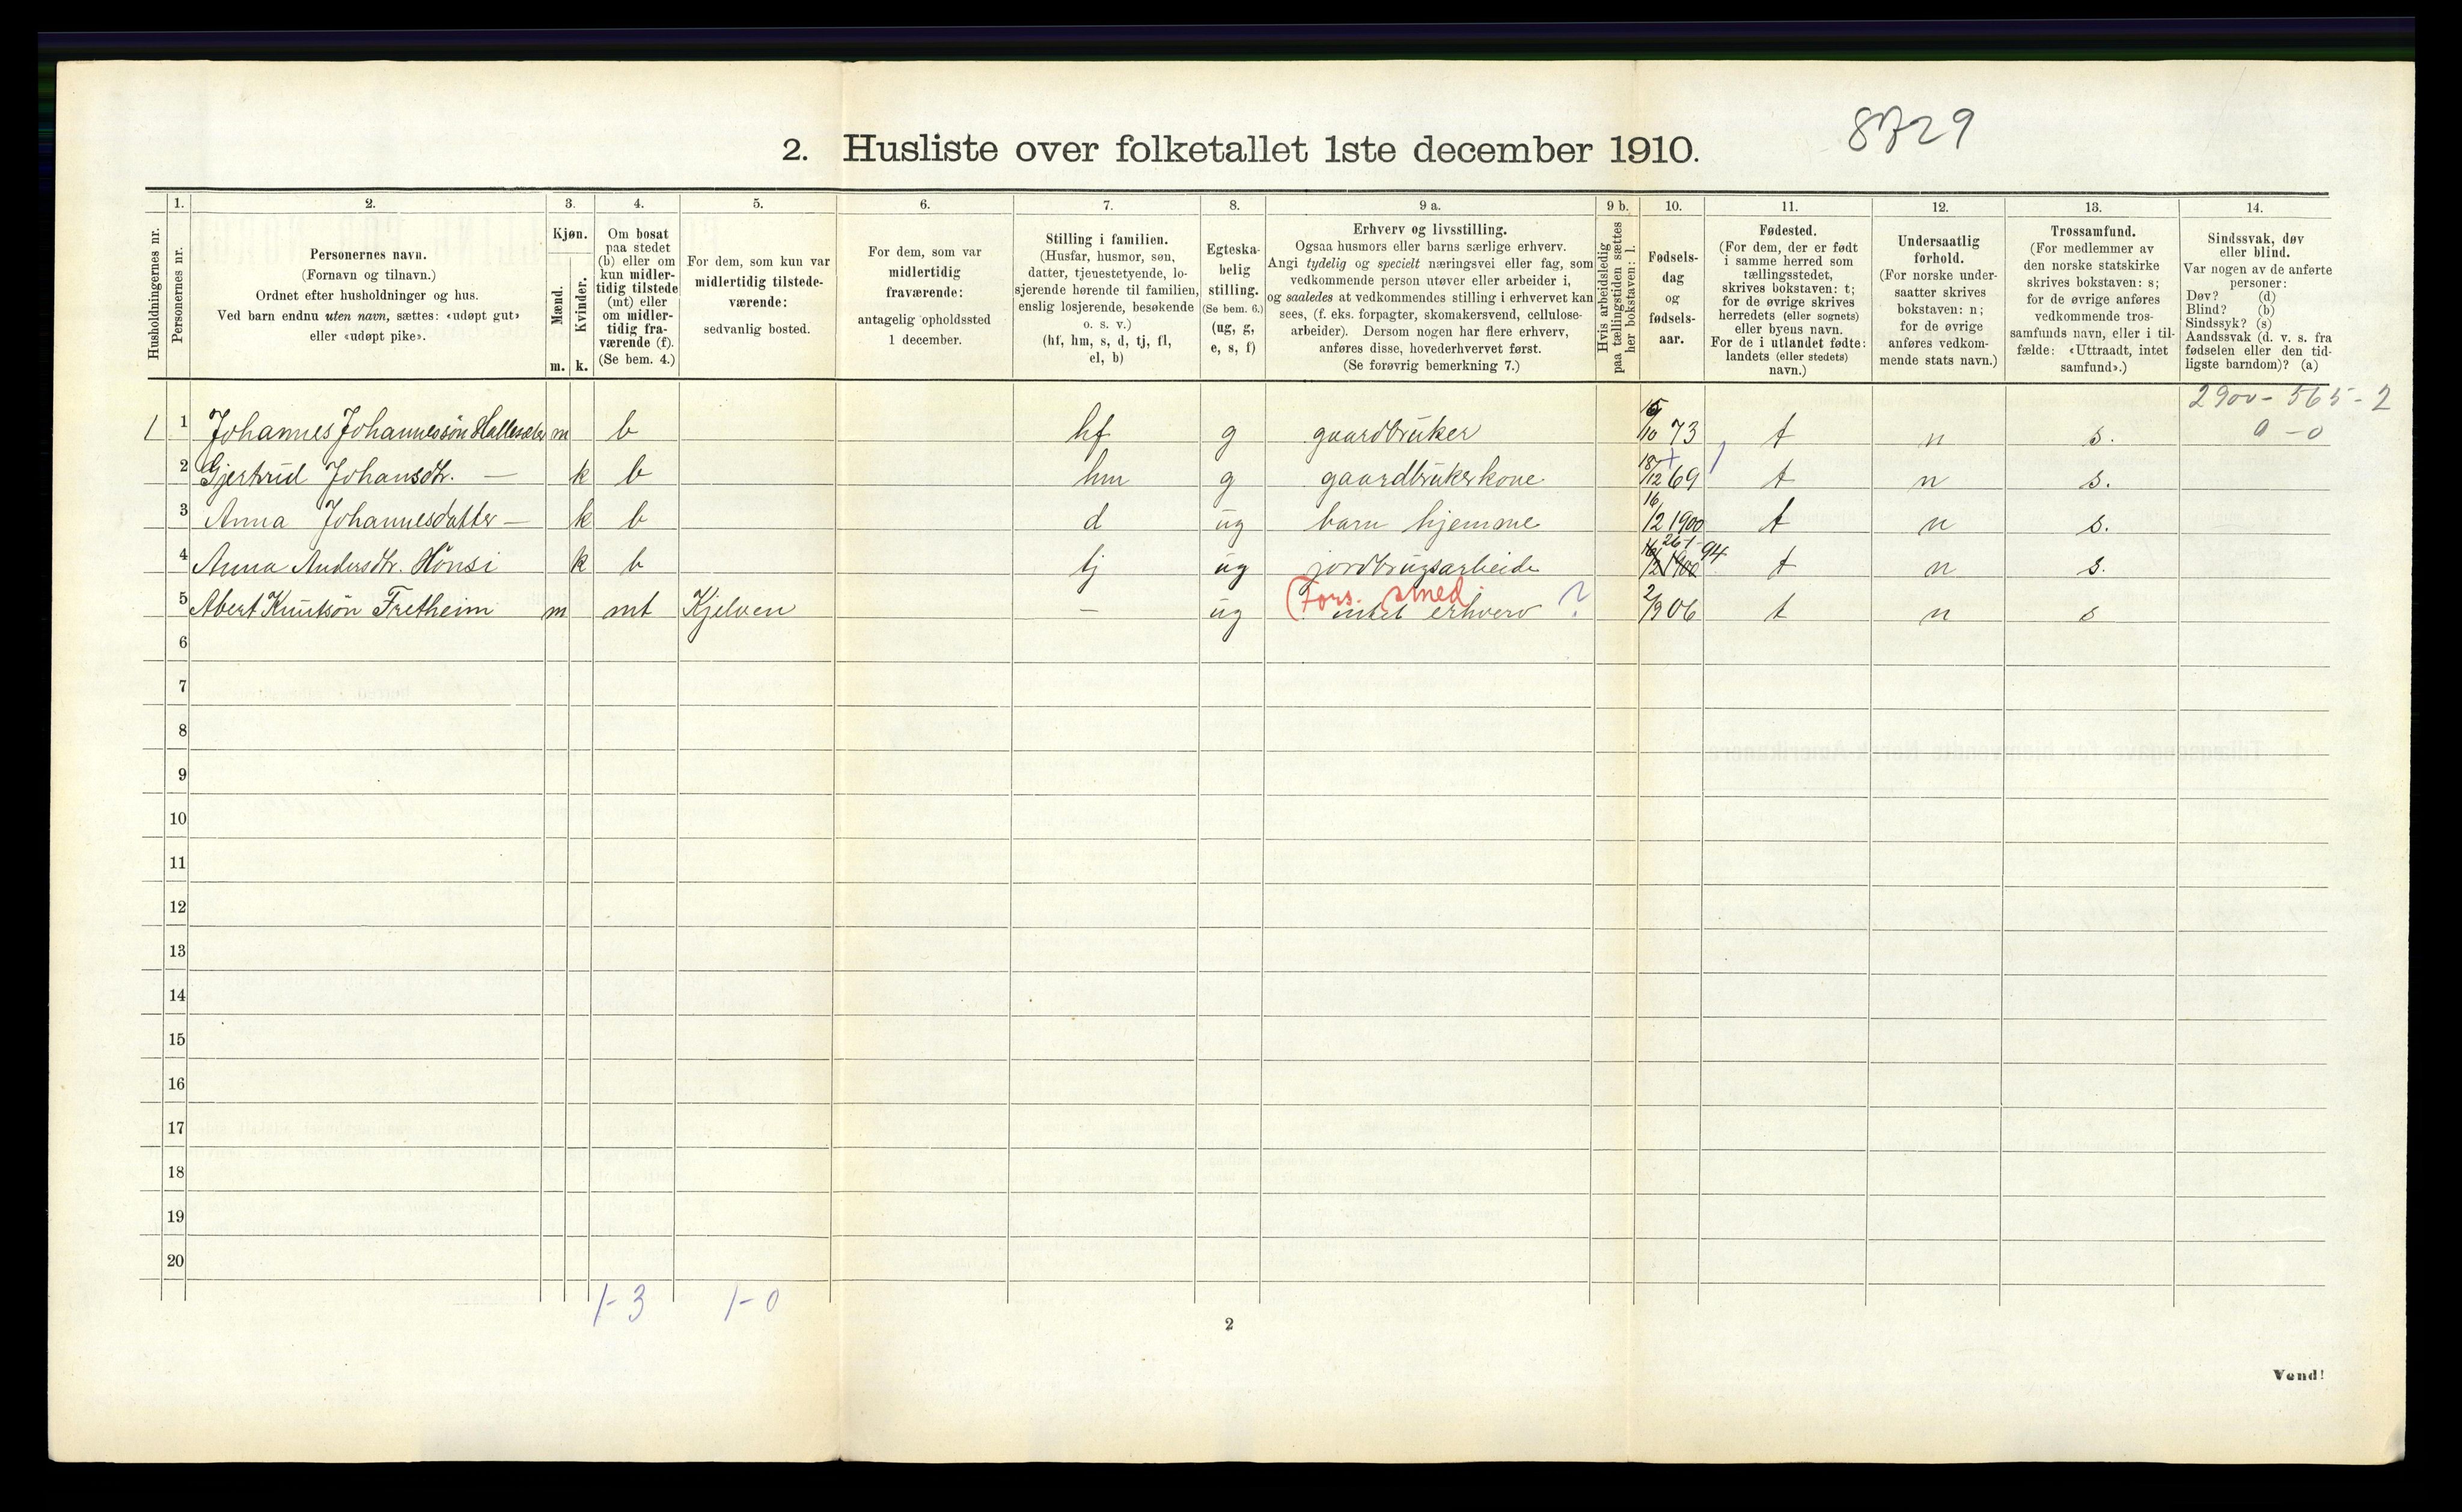 8729
2. Husliste over folketallet 1ste december 1910.
Husholdningernes nr.
1.
Personernes nr.
2.
Personernes navn.
(Fornavn og tilnavn.)
Ordnet efter husholdninger og hus.
Ved barn endnu uten navn, sættes: «udøpt gut»
eller «udøpt pike».
3.
Kjøn.
Mænd.
Kvinder.
m. k.
4.
Om bosat
paa stedet
(b) eller om
kun midler-
tidig tilstede
(mt) eller
om midler-
tidig fra-
værende (f).
(Se bem. 4.)
5.
For dem, som kun var
midlertidig tilstede-
værende:
sedvanlig bosted.
6.
For dem, som var
midlertidig
fraværende:
antagelig opholdssted
1 december.
7.
Stilling i familien.
(Husfar, husmor, søn,
datter, tjenestetyende, lo-
sjerende hørende til familien,
enslig losjerende, besøkende
o. s. v.)
(hf, hm, s, d, tj, fl,
el, b)
8.
Egteska-
belig
stilling.
(Se bem. 6.)
(ug, g,
e, s, f)
9 a.
Erhverv og livsstilling.
Ogsaa husmors eller barns særlige erhverv.
Angi tydelig og specielt næringsvei eller fag, som
vedkommende person utøver eller arbeider i,
og saaledes at vedkommendes stilling i erhvervet kan
sees, (f. eks. forpagter, skomakersvend, cellulose-
arbeider). Dersom nogen har flere erhverv,
anføres disse, hovederhvervet først.
(Se forøvrig bemerkning 7.)
9 b.
Hvis arbeidsledig
paa tællingstiden sættes
her bokstaven: l.
10.
Fødsels-
dag
og
fødsels-
aar.
11.
Fødested.
(For dem, der er født
i samme herred som
tællingsstedet,
skrives bokstaven: t;
for de øvrige skrives
herredets (eller sognets)
eller byens navn.
For de i utlandet fødte:
landets (eller stedets)
navn.)
12.
Undersaatlig
forhold.
(For norske under-
saatter skrives
bokstaven: n;
for de øvrige
anføres vedkom-
mende stats navn.)
13.
Trossamfund.
(For medlemmer av
den norske statskirke
skrives bokstaven: s;
for de øvrige anføres
vedkommende tros-
samfunds navn, eller i til-
fælde: «Uttraadt, intet
samfund».)
14.
Sindssvak, døv
eller blind.
Var nogen av de anførte
personer:
Døv? (d)
Blind? (b)
Sindssyk? (s)
Aandssvak (d. v. s. fra
fødselen eller den tid-
ligste barndom)? (a)
2900 - 565 - 2
0 - 0
1 1 Johannes Johannessön m b hf g gaardbruker /10 73 t n s.
2 Gjertrud Johansdtr. — k b hm g gaardbrukerkone 18/12 69 t n s.
3 Anna Johannesdatter — k b d ug barn hjemme 16/12 1900 t n s.
4 Anna Andersdtr. Hönsi k b tj ug jordbrugsarbeide 26/1 94 t n s.
5 Abert Knutsön Fretheim m mt Kjelven — ug intet erhverv ? 2/9 06 t n s
(Fors. smed
6
7
8
9
10
11
12
13
14
15
16
17
18
19
20
1-3 1-0
2
Vend!